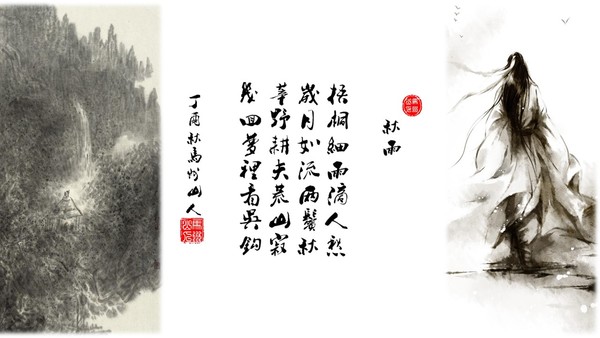 秋雨
梧桐細雨滴人愁
歲月如流兩鬢秋
莘野耕夫荒山寂
幾回夢裡看吳鈎
丁酉秋馬山人